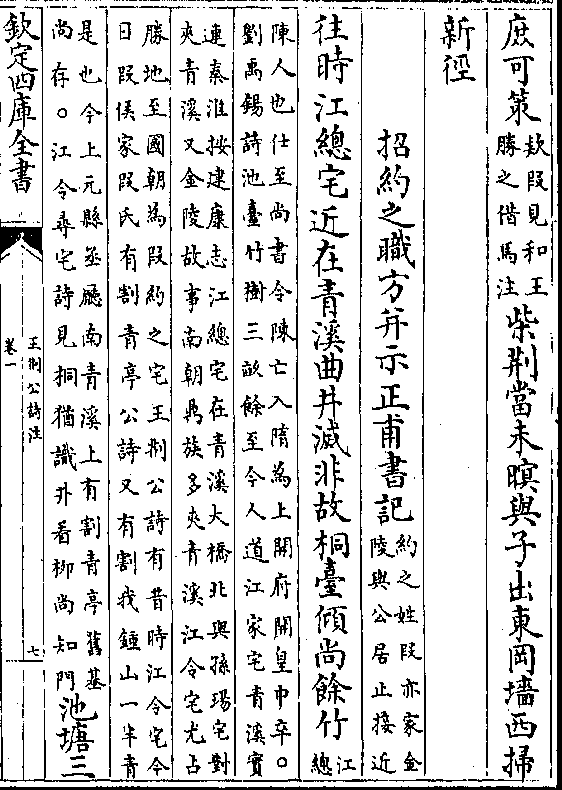 庶可策
欵段見和王
勝之借馬注
柴荆當未暝與子出東岡墻西掃
新徑
招約之職方并示正甫書記
約之姓段亦家金
陵與公居止接近
往時江總宅近在青溪曲井滅非故桐臺傾尚餘竹
江
總
陳人也仕至尚書令陳亡入隋為上開府開皇中卒。
劉禹錫詩池臺竹樹三畝餘至今人道江家宅青溪實
連秦淮按建康志江總宅在青溪大橋北與孫瑒宅對
夾青溪又金陵故事南朝鼎族多夾青溪江令宅尤占
勝地至國朝為段約之宅王荆公詩有昔時江令宅今
日段侯家段氏有割青亭公詩又有割我鍾山一半青
是也今上元縣丞廳南青溪上有割青亭舊基
尚存。江令尋宅詩見桐猶識井看柳尚知門
池塘三
欽定四庫全書
王荆公詩注
卷一
七